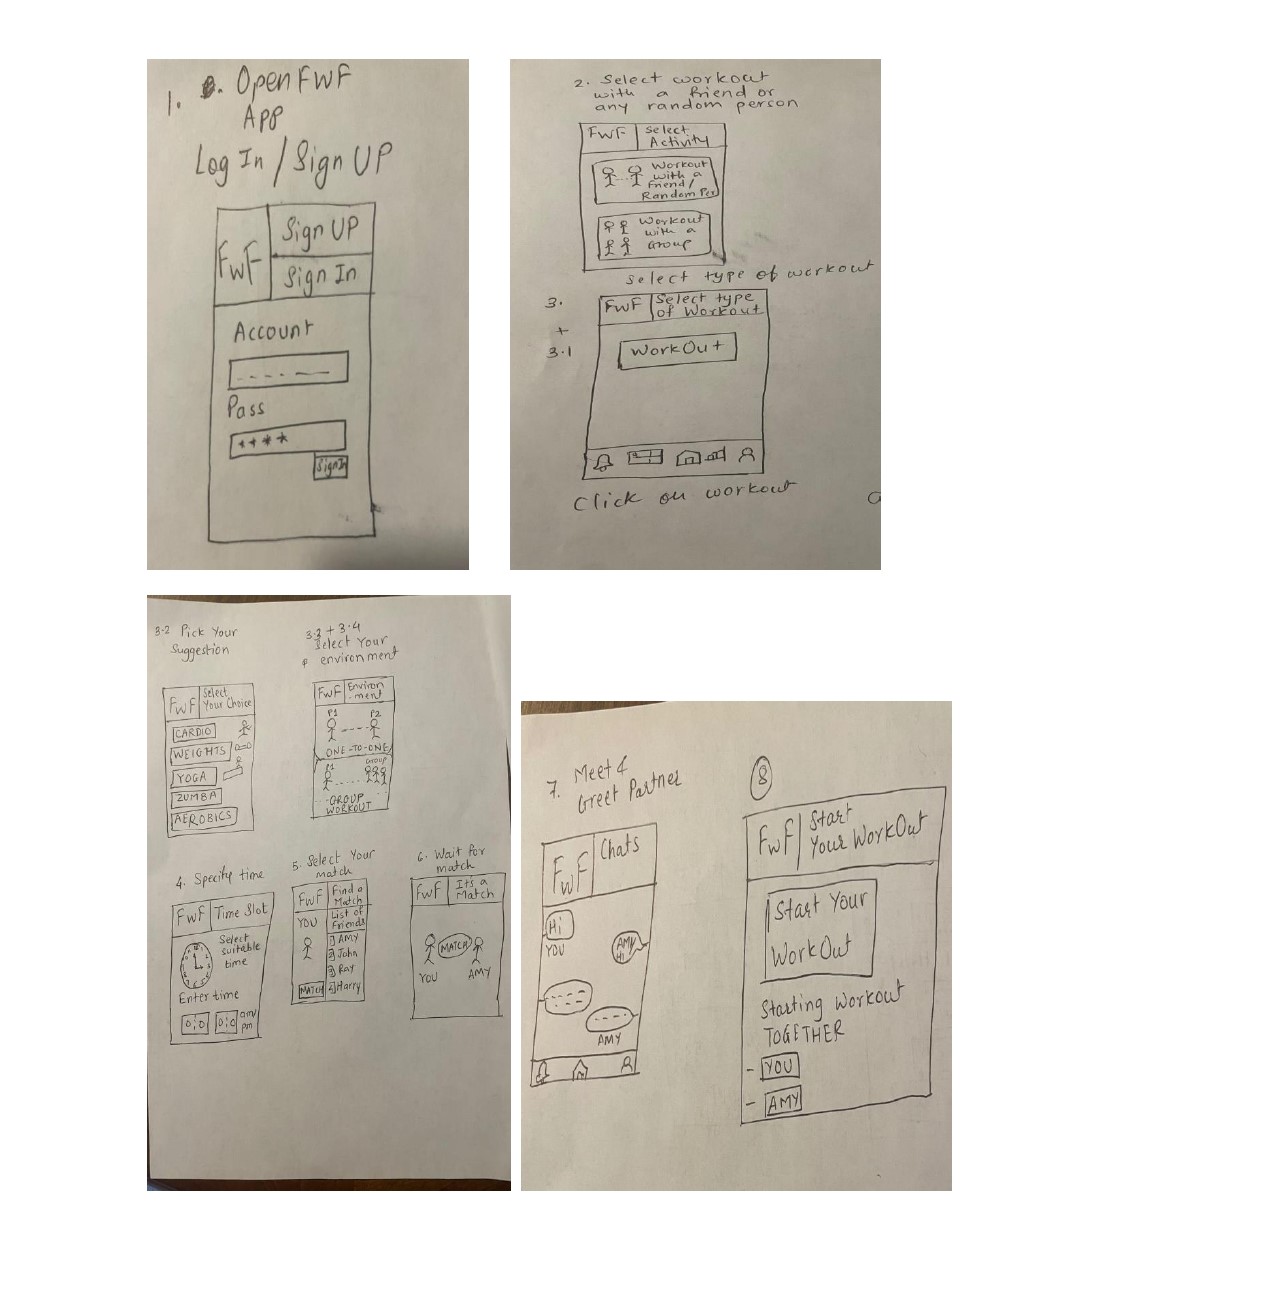 1. Open FWF
App
Log In / Sign UP
FWF
Sign UP
Sign In
Account
Pass
****
Sign In
2. Select workout
with a friend or
any random person
FWF
Select
Activity
Workout
with a
friend/
Random Per
Workout
with a
Group
Select type of workout
3.
+
3.1
FWF
Select type
of Workout
WorkOut
Click on workout
3.2 Pick Your
Suggestion
FWF
Select
Your Choice
CARDIO
WEIGHTS
YOGA
ZUMBA
AEROBICS
3.3 + 3.4
Select Your
environment
FWF
Environ
-ment
P1
P2
ONE-TO-ONE
P1
Group
GROUP
WORKOUT
4. Specify time
FWF
Time Slot
Select
suitable
time
Enter time
0:0
0:0
am/
pm
5. Select Your
match
FWF
Find a
Match
YOU
List of
Friends
1) AMY
2) John
3) Ray
4) Harry
MATCH
6. Wait for
match
FWF
Its a
Match
MATCH
YOU
AMY
7. Meet &
Greet Partner
FWF
Chats
Hi
YOU
AMY
Hi
AMY
8
FWF
Start
Your WorkOut
Start Your
WorkOut
Starting workout
TOGETHER
- YOU
- AMY